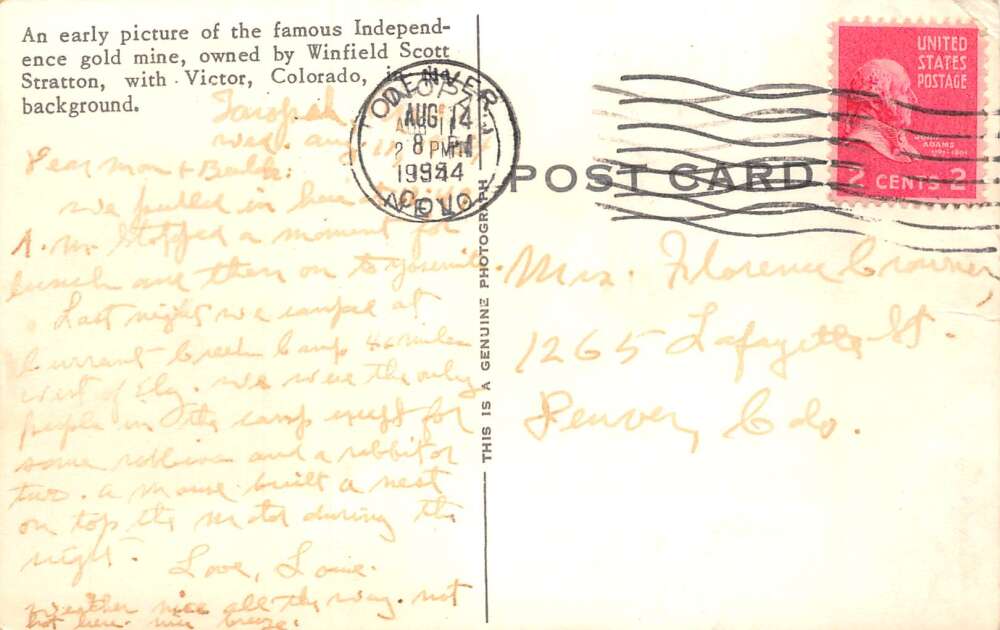 An early picture of the famous Independ-
ence gold mine, owned by Winfield Scott
Stratton, with Victor, Colorado, in the
background.
Wed. Aug.
Dear Mom + Beulah:
We pulled in here at
A.M. Stopped a moment for
lunch and then on to Yosemite.
Last night we camped at
Currant Creek Camp 46 miles
west of Ely. We were the only
people in the camp except for
some robins and a rabbit or
two. A mouse built a nest
on top the motor during the
night.
Love, Louie.
Weather nice all the way. not
hot here. nice breeze.
THIS IS A GENUINE PHOTOGRAPH
POST CARD
DENVER
AUG 14
8 PM
1954
COLO
UNITED
STATES
POSTAGE
ADAMS
2 CENTS 2
Mrs. Florence Crowner
1265 Lafayette St.
Denver, Colo.